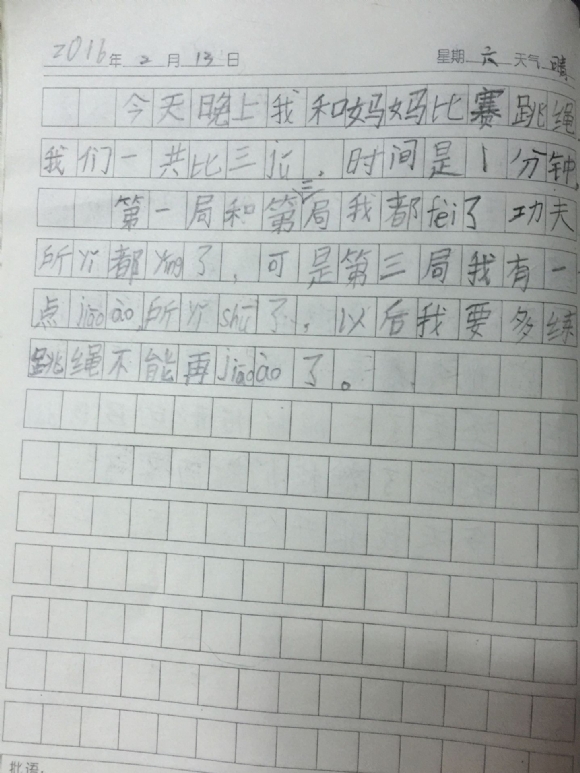 2016年2月13日 星期六 天气晴
今天晚上我和妈妈比赛跳绳
我们一共比三jú,时间是1分钟,
第一局和第二局我都fèi了功夫
所yǐ都yíng了,可是第三局我有一
点jiāoào所yǐshū了,以后我要多练
跳绳不能再jiāoào了。
批语: